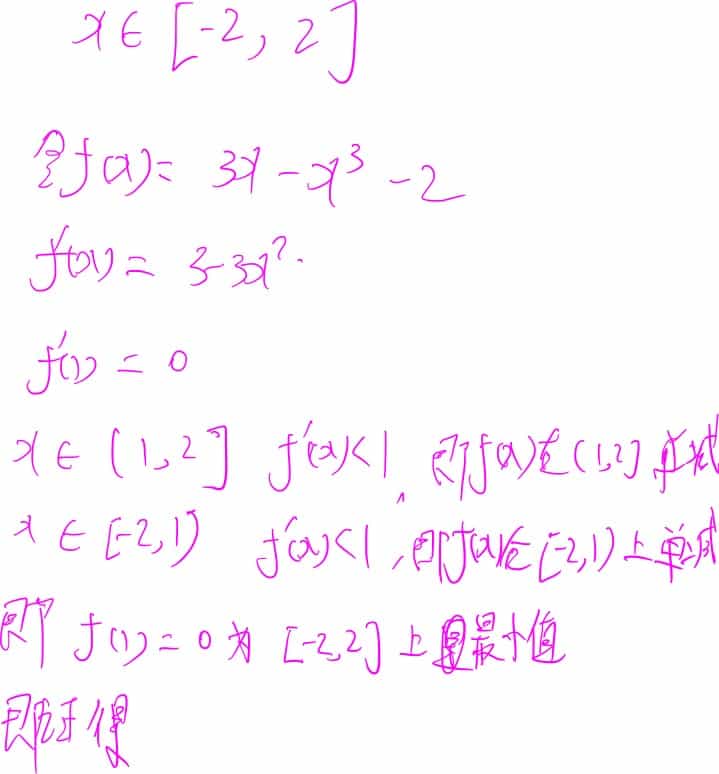 x∈[-2, 2]
令f(x)= 3x-x³-2
f'(x)= 3-3x².
f'(1)=0
x∈(1,2] f'(x)<1, 即f(x)在(1,2]单减
x∈[-2,1) f'(x)<1,即f(x)在[-2,1)上单减
即 f(1)=0为[-2,2]上最小值
即证得